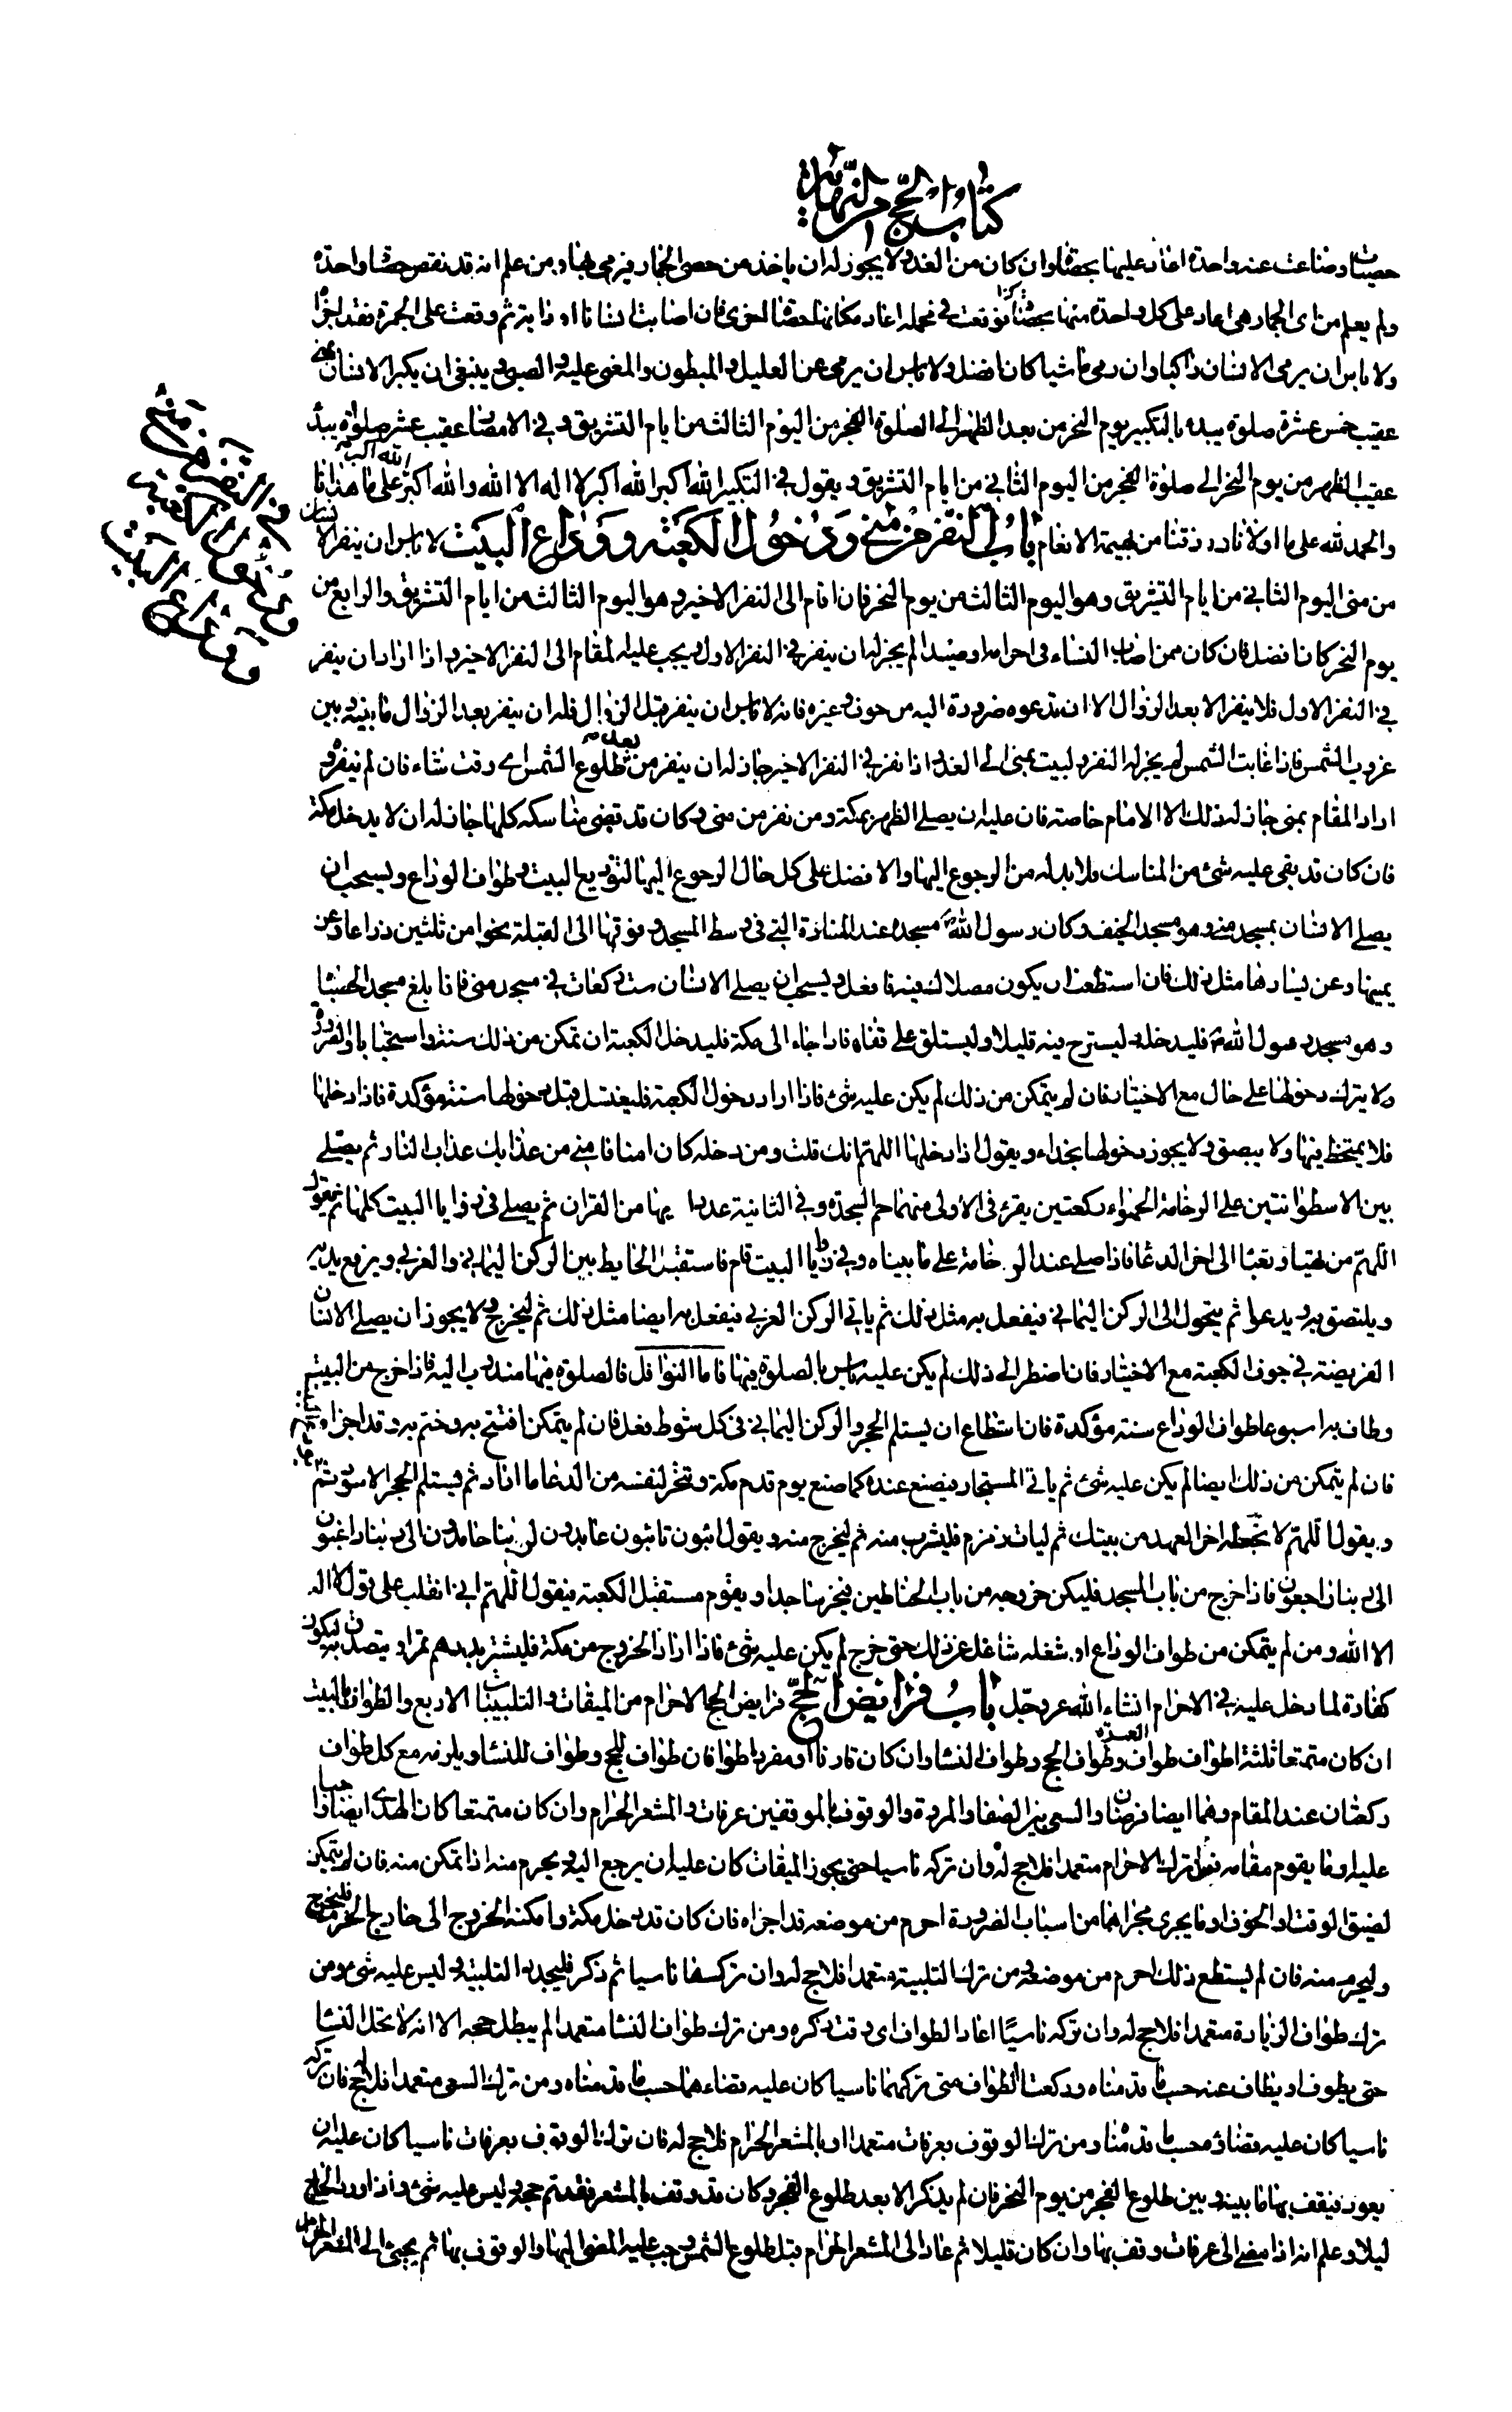 كتاب الحج من النهاية
حصيات وضاعت عنه واحدة اعاد عليها بحصاة وان كان من الغد ولا يجوز له ان ياخذ من حصى الجمار فيرمي بها ومن علم انه قد نقص حصاة واحدة
ولم يعلم من اي الجمار هي اعاد على كل واحدة منها بحصاة فوقعت في محمله اعاد مكانها حصاة اخرى فان اصابت انسانا او دابة ثم وقعت على الجمرة فقد اجزاه
ولا باس ان يرمي الانسان راكبا وان رمى ماشيا كان افضل ولا باس ان يرمى عن العليل والمبطون والمغمى عليه والصبي وينبغي ان يكبر الانسان بمنى
عقيب خمس عشرة صلوة يبدء بالتكبير يوم النحر من بعد الظهر الى الصلوة الفجر من اليوم الثالث من ايام التشريق وفي الامصار عقيب عشر صلوات يبدأ
عقيب الظهر من يوم النحر الى صلوة الفجر من اليوم الثاني من ايام التشريق ويقول في التكبير الله اكبر الله اكبر لا اله الا الله والله اكبر الله اكبر على ما هدانا
والحمد لله على ما اولانا ورزقنا من بهيمة الانعام باب النفر من منى ودخول الكعبة ووداع البيت لا باس ان ينفر الانسان
من منى اليوم الثاني من ايام التشريق وهو اليوم الثالث من يوم النحر فان اقام الى النفر الاخير وهو اليوم الثالث من ايام التشريق والرابع من
يوم النحر كان افضل فان كان ممن اصاب النساء في احرامه او صيدا لم يجز له ان ينفر في النفر الاول ويجب عليه المقام الى النفر الاخير واذا اراد ان ينفر
في النفر الاول فلا ينفر الا بعد الزوال الا ان تدعوه ضرورة اليه من خوف وغيره فانه لا باس ان ينفر قبل الزوال فله ان ينفر بعد الزوال ما بينه وبين
غروب الشمس فاذا غابت الشمس لم يجز له النفر وليبت بمنى الى الغد واذا نفر في النفر الاخير جاز له ان ينفر من بعد طلوع الشمس اي وقت شاء فان لم ينفر و
اراد المقام بمنى جاز له ذلك الا الامام خاصة فان عليه ان يصلي الظهر بمكة ومن نفر من منى وكان قد قضى مناسكه كلها جاز له ان لا يدخل مكة
فان كان قد بقي عليه شئ من المناسك فلا بد له من الرجوع اليها والافضل على كل حال الرجوع اليها لتوديع البيت وطواف الوداع ويستحب ان
يصلي الانسان بمسجد منى وهو مسجد الخيف وكان رسول الله ص مسجده عند المنارة التي في وسط المسجد وفوقها الى القبلة نحوا من ثلثين ذراعا وعن
يمينها وعن يسارها مثل ذلك فان استطعت ان يكون مصلاك فيه فافعل ويستحب ان يصلي الانسان ست ركعات في مسجد منى فاذا بلغ مسجد الحصباء
وهو مسجد رسول الله ص فليدخله وليسترح فيه قليلا وليستلق على قفاه فاذا جاء الى مكة فليدخل الكعبة ان تمكن من ذلك سنة واستحبابا والصرورة
ولا يترك دخولها على حال مع الاختيار فان لم يتمكن من ذلك لم يكن عليه شئ فاذا اراد دخول الكعبة فليغتسل قبل دخولها سنة مؤكدة فاذا دخلها
فلا يمتخط فيها ولا يبصق ولا يجوز دخولها بحذاء ويقول اذا دخلها اللهم انك قلت ومن دخله كان امنا فامني من عذابك عذاب النار ثم يصلي
بين الاسطوانتين على الرخامة الحمراء ركعتين يقرء في الاولى منهما حم السجدة وفي الثانية عدد ايها من القران ثم يصلي في زوايا البيت كلها ثم يقول
اللهم من تهيا وتعبا الى اخر الدعا فاذا صلى عند الرخامة على ما بيناه وفي زوايا البيت قام فاستقبل الحايط بين الركن اليماني والغربي ويرفع يديه
ويلتصق به ويدعوا ثم يتحول الى الركن اليماني فيفعل به مثل ذلك ثم ياتي الركن الغربي فيفعل به ايضا مثل ذلك ثم ليخرج ولا يجوز ان يصلي الانسان
الفريضة في جوف الكعبة مع الاختيار فان اضطر الى ذلك لم يكن عليه باس بالصلوة فيها فاما النوافل فالصلوة فيها مندوب اليه فاذا خرج من البيت
وطاف به اسبوعا طواف الوداع سنة مؤكدة فان استطاع ان يستلم الحجر والركن اليماني في كل شوط فعل فان لم يتمكن افتتح به وختم به وقد اجزاه
فان لم يتمكن من ذلك ايضا لم يكن عليه شئ ثم ياتي المستجار فيصنع عنده كما صنع يوم قدم مكة وتخير لنفسه من الدعا ما اراد ثم يستلم الحجر الاسود ثم
ويقول اللهم لا تجعله اخر العهد من بيتك ثم ليات زمزم فليشرب منه ثم ليخرج منه ويقول ائبون تائبون عابدون لربنا حامدون الى ربنا راغبون
الى ربنا راجعون فاذا خرج من باب المسجد فليكن خروجه من باب الحناطين فيخر ساجدا ويقوم مستقبل الكعبة فيقول اللهم اني انقلب على قول لا اله
الا الله ومن لم يتمكن من طواف الوداع او شغله شاغل عن ذلك حتى خرج لم يكن عليه شئ فاذا اراد الخروج من مكة فليشتر بدرهم تمرا ويتصدق به ليكون
كفارة لما دخل عليه في الاحرام انشاء الله عز وجل باب فرائض الحج فرايض الحج الاحرام من الميقات والتلبيات الاربع والطواف بالبيت
ان كان متمتعا ثلثة اطواف طواف العمرة وطواف الحج وطواف النساء وان كان قارنا او مفردا طوافان طواف للحج وطواف للنساء ويلزمه مع كل طواف
ركعتان عند المقام وهما ايضا فرضان والسعي بين الصفا والمروة والوقوف بالموقفين عرفات والمشعر الحرام وان كان متمتعا كان الهدي ايضا واجبا
عليه او ما يقوم مقامه فمن ترك الاحرام متعمدا فلا حج له وان تركه ناسيا حتى يجوز الميقات كان عليه ان يرجع اليه ويحرم منه اذا تمكن منه فان لم يتمكن
لضيق الوقت او الخوف او ما يجري مجراهما من اسباب الضرورة احرم من موضعه قد اجزاه فان كان قد دخل مكة وامكنه الخروج الى خارج الحرم فليخرج
وليحرم منه فان لم يستطع ذلك احرم من موضعه ومن ترك التلبية متعمدا فلا حج له وان تركها ناسيا ثم ذكر فليجدد التلبية وليس عليه شئ ومن
ترك طواف الزيارة متعمدا فلا حج له وان تركه ناسيا اعاد الطواف اي وقت ذكره ومن ترك طواف النسا متعمدا لم يبطل حجه الا انه لا تحل له النسا
حتى يطوف او يطاف عنه حسب ما قدمناه وركعتا الطواف متى تركهما ناسيا كان عليه قضاءهما حسب ما قدمناه ومن ترك السعي متعمدا فلا حج له فان تركه
ناسيا كان عليه قضاؤه حسب ما قدمناه ومن ترك الوقوف بعرفات متعمدا او بالمشعر الحرام فلا حج له فان ترك الوقوف بعرفات ناسيا كان عليه ان
يعود فيقف بها ما بينه وبين طلوع الفجر من يوم النحر فان لم يذكر الا بعد طلوع الفجر وكان قد وقف بالمشعر فقد تم حجه وليس عليه شئ واذا ورد الحاج
ليلا وعلم انه اذا مضى الى عرفات وقف بها وان كان قليلا ثم عاد الى المشعر الحرام قبل طلوع الشمس وجب عليه المضي اليها والوقوف بها ثم يجئ الى المشعر الحرام
في النفر من منى
ودخول الكعبة
ووداع البيت